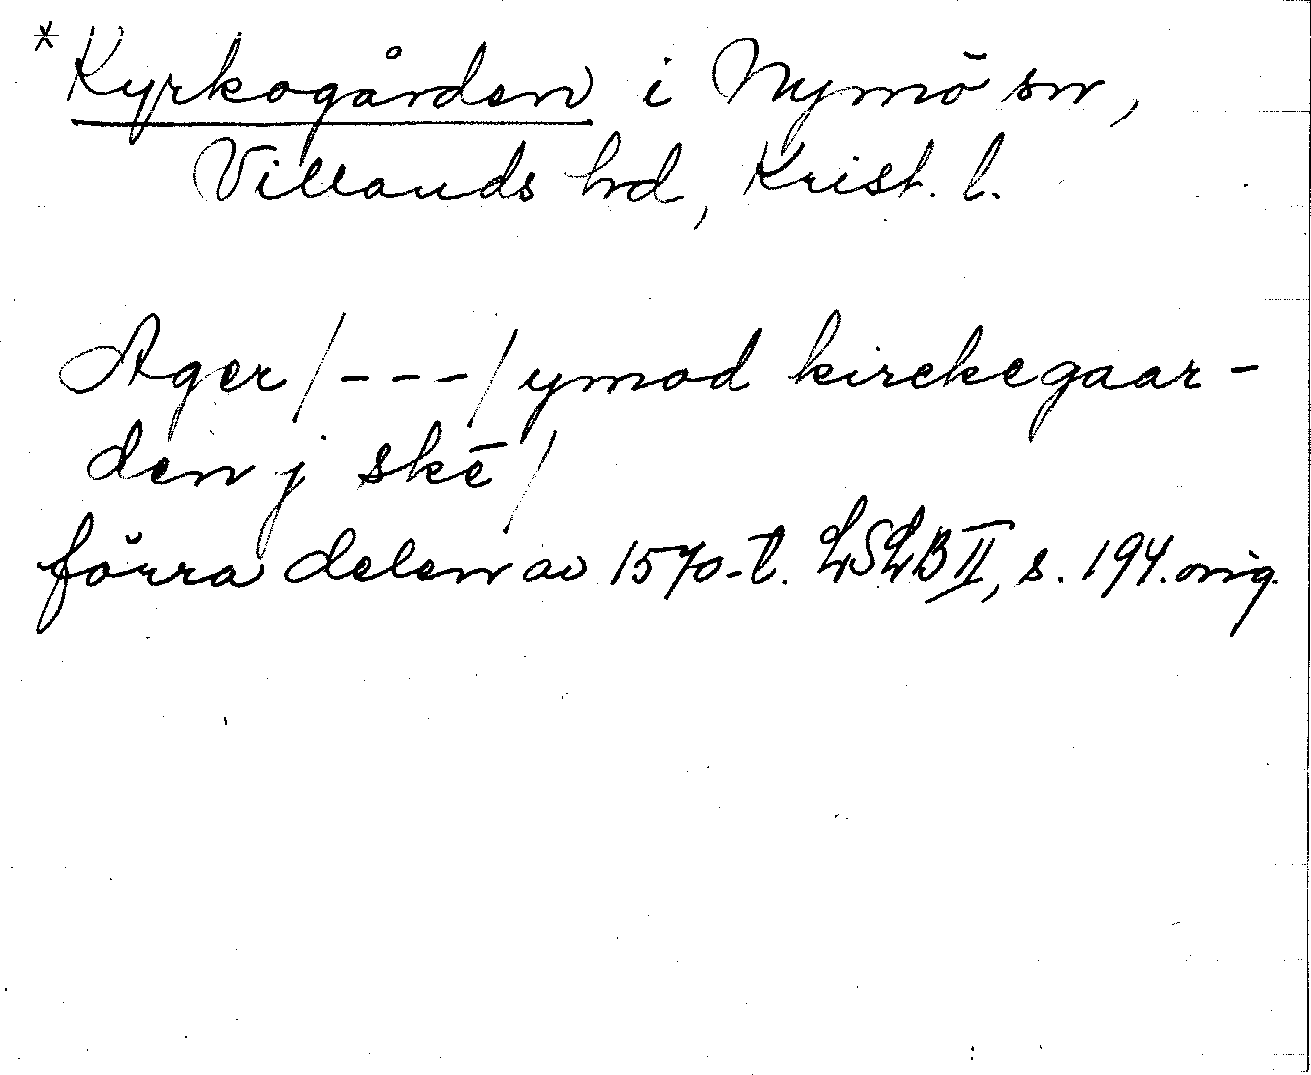 *Kyrkogården i Nymö sn,
Villands hd, Krist. l.
Ager /---/ ymod kirckegaar-
den j skē /
förra delen av 1570-t. LSLB II, s. 194. orig.